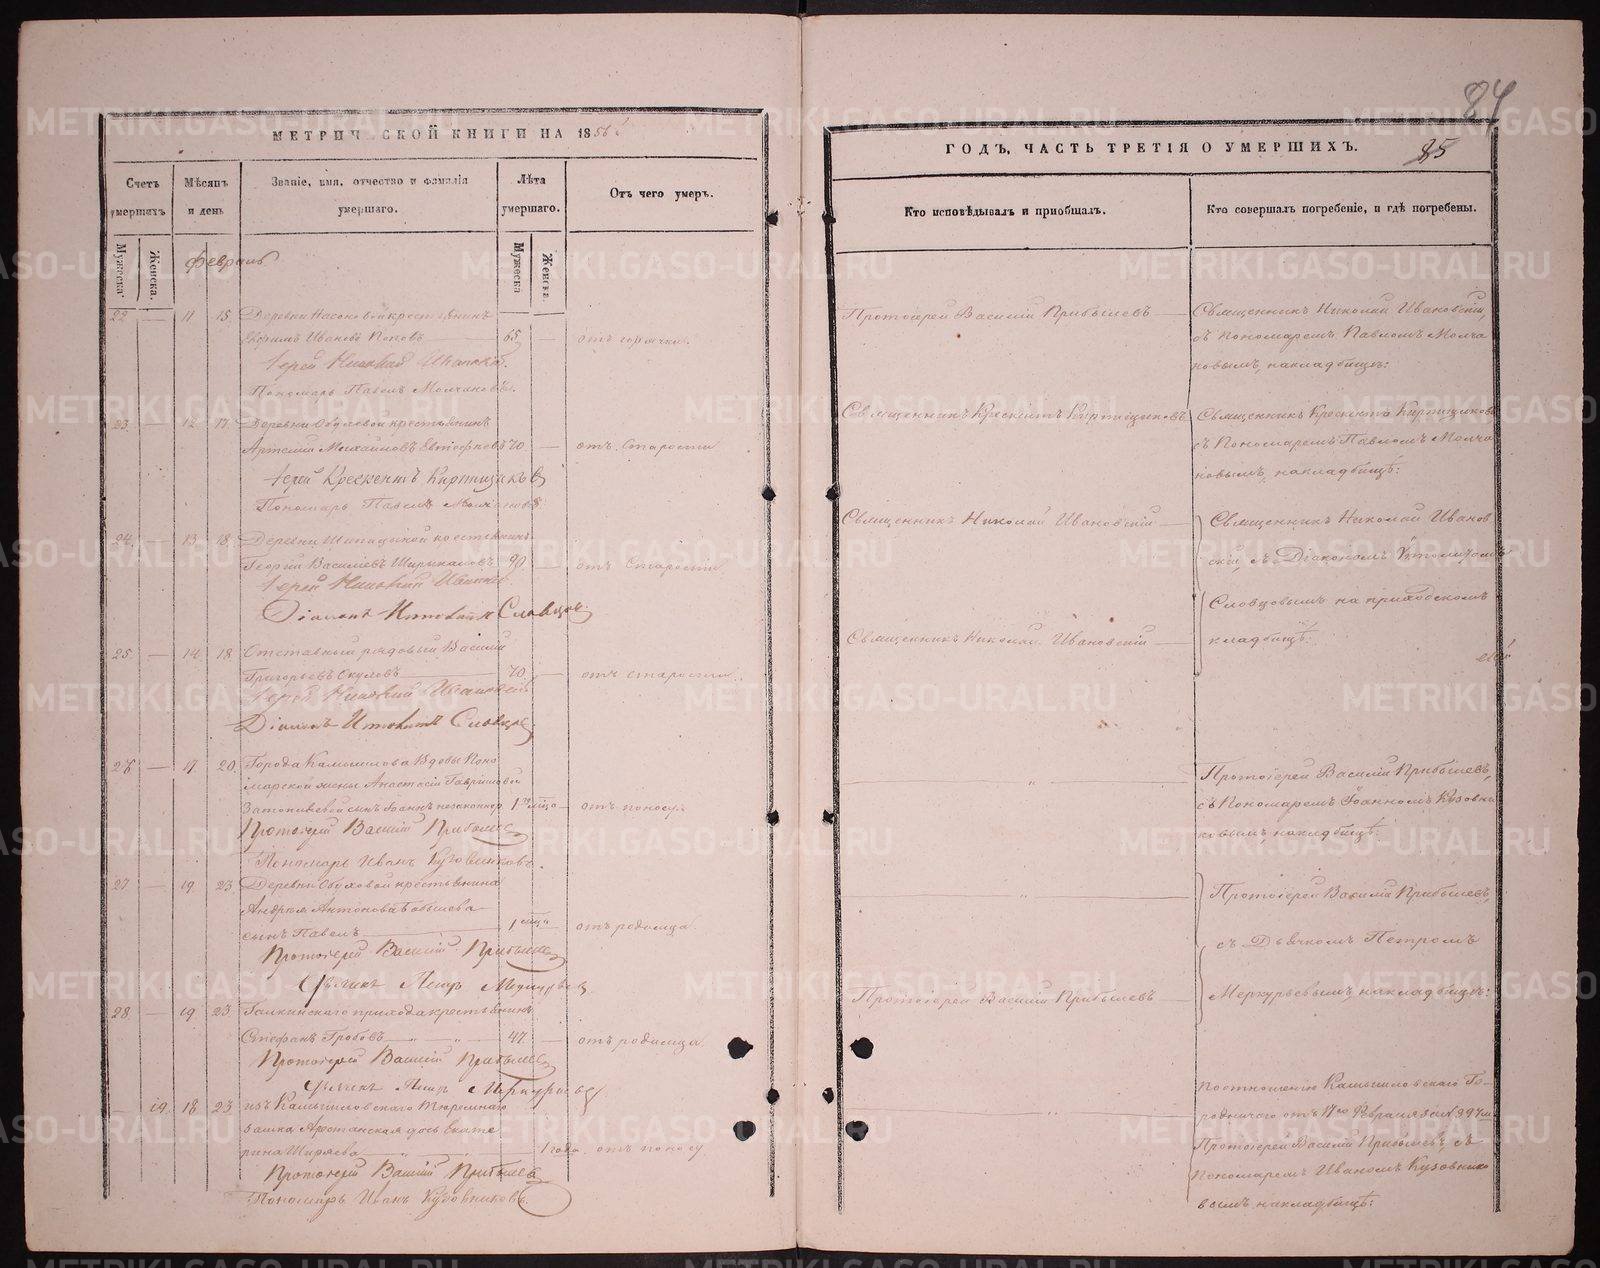 МЕТРИЧЕСКОЙ КНИГИ НА 1856
Счетъ умершихъ
Мѣсяцъ и день
Званіе, имя, отчество и фамилія умершаго.
Лѣта умершаго.
Отъ чего умеръ.
Мужеска.
Женска.
Мужеска
Женска.
Февраль
22 — 11 15. Деревни Насоновой крестьянинъ
Ефимъ Ивановъ Поповъ 65 — отъ горячки.
Іерей Николай Ивановскій.
Пономарь Павелъ Молчановъ.
23. — 12 17. Деревни Обуховой крестьянинъ
Артемій Михайловъ 70 — отъ старости
Іерей Крескентъ Киртищиковъ
Пономарь Павелъ Молчановъ.
24. — 13 18. Деревни крестьянинъ
Георгій Васильевъ 90 — отъ старости.
Іерей Николай Ивановскій
Діаконъ Словцовъ.
25. — 14 18. Отставный рядовый Василій
Григорьевъ Окуловъ 70 — отъ старости.
Іерей Николай Ивановскій
Діаконъ Словцовъ
26 — 17 20. Города Камышлова вдовы поно
марской жены Анастасіи Гавриловой
сынъ Іоаннъ незаконнор. 1 мѣс. — отъ поносу.
Протоіерей Василій Прибылевъ
Пономарь Иванъ Кузовниковъ.
27 — 19 23. Деревни Обуховой крестьянина
Андрея Антонова Бабышева
сынъ Павелъ 1 — отъ родимца.
Протоіерей Василій Прибылевъ
Дьячекъ Петръ Меркурьевъ
28. — 19 23 Галкинскаго прихода крестьянинъ
Стефанъ Гробовъ 47. — отъ родимца.
Протоіерей Василій Прибылевъ
Дьячекъ Петръ Меркурьевъ
— 19. 18 23 изъ Камышловскаго тюремнаго
замка арестанская дочь Екате
рина Ширяева 1 года. отъ поносу
Протоіерей Василій Прибылевъ
Пономарь Иванъ Кузовниковъ.
84
85
ГОДЪ, ЧАСТЬ ТРЕТІЯ О УМЕРШИХЪ.
Кто исповѣдывалъ и пріобщалъ.
Кто совершалъ погребеніе, и гдѣ погребены.
Протоіерей Василій Прибылевъ —
Священникъ Николай Ивановскій,
съ Пономаремъ Павломъ Молча
новымъ, на кладбищѣ:
Священникъ Крескентъ Киртищиковъ
Священникъ Крескентъ Киртищиковъ
съ Пономаремъ Павломъ Молча
новымъ, на кладбищѣ:
Священникъ Николай Ивановскій —
Священникъ Николай Иванов
скій, съ Діакономъ
Словцовымъ на приходскомъ
кладбищѣ:
Священникъ Николай Ивановскій —
Протоіерей Василій Прибылевъ,
съ Пономаремъ Іоанномъ Кузовни
ковымъ, на кладбищѣ:
Протоіерей Василій Прибылевъ,
съ Дьячкомъ Петромъ
Меркурьевымъ, на кладбищѣ:
Протоіерей Василій Прибылевъ —
По отношенію Камышловскаго Го-
родничаго отъ 17го Февраля за №
Протоіерей Василій Прибылевъ, съ
Пономаремъ Иваномъ Кузовнико
вымъ на кладбищѣ:
METRIKI.GASO-URAL.RU